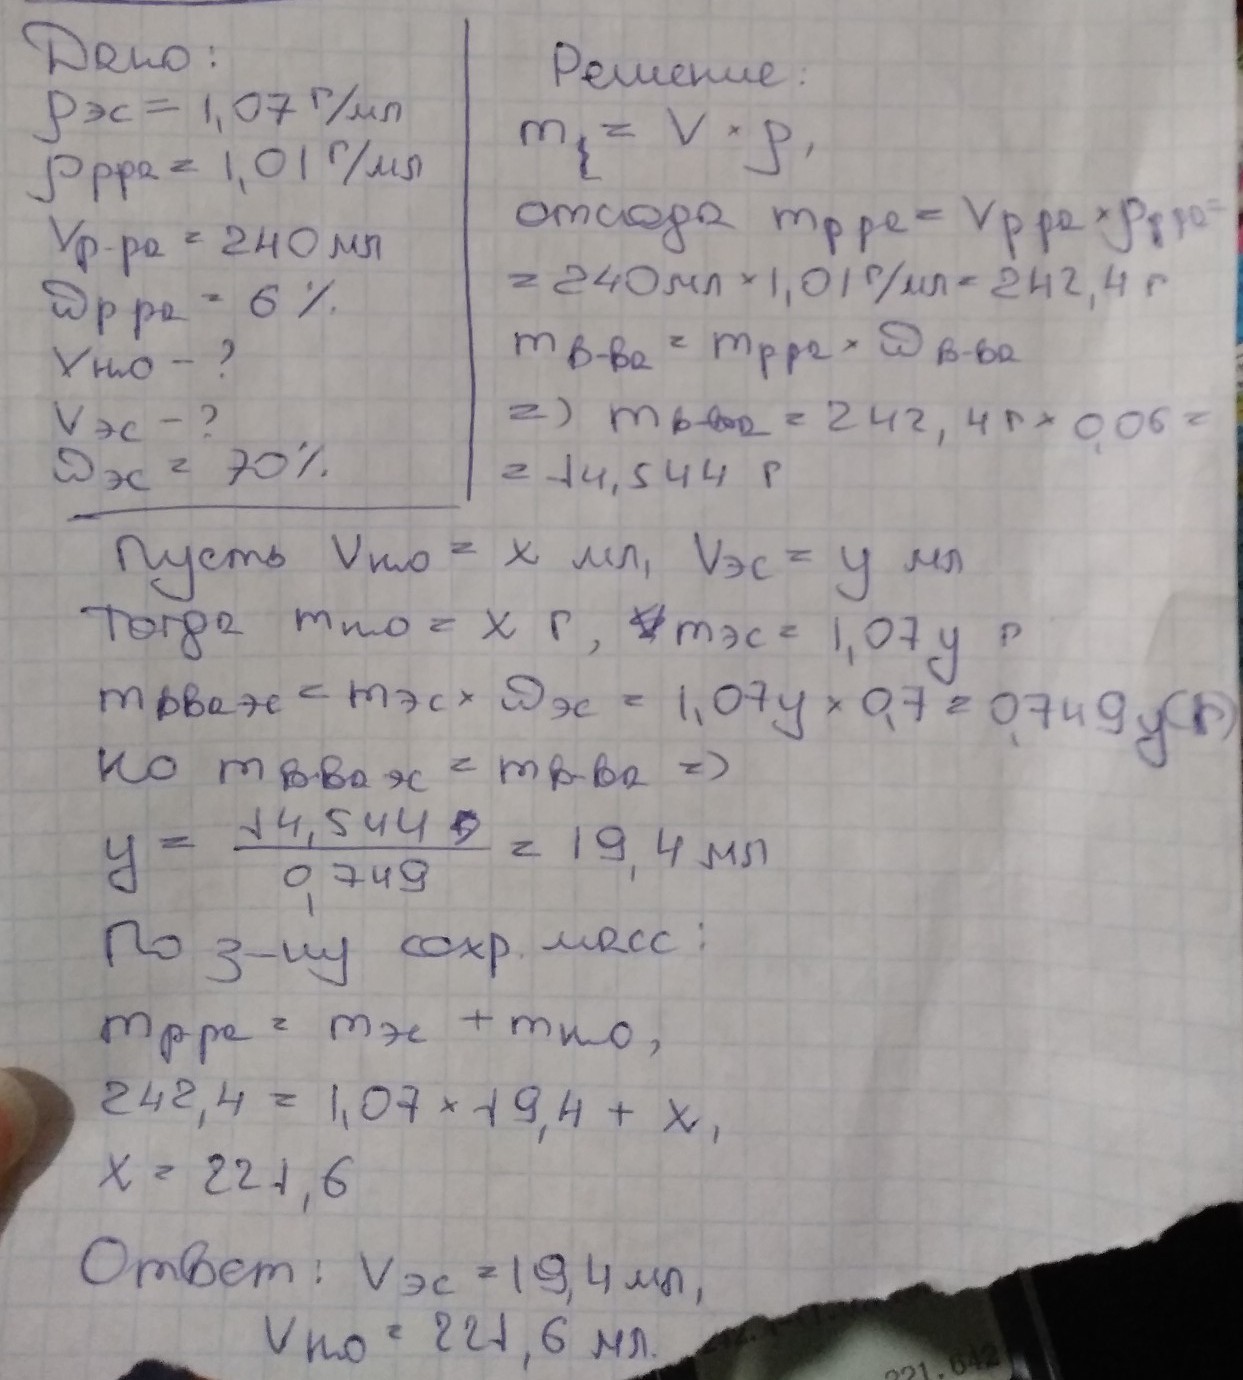 Дано:
ρэс = 1,07 г/мл
ρрра = 1,01 г/мл
Vр-ра = 240 мл
ωрра = 6%
Vн₂о - ?
Vэс - ?
ωэс = 70%
Решение:
m = V × ρ,
отсюда mрра = Vрра × ρрра =
= 240 мл × 1,01 г/мл = 242,4 г
mв-ва = mрра × ωв-ва
=> mв-ва = 242,4 г × 0,06 =
= 14,544 г
Пусть Vн₂о = x мл, Vэс = y мл
Тогда mн₂о = x г, mэс = 1,07y г
mвваэс = mэс × ωэс = 1,07y × 0,7 = 0,749y (г)
Но mв-ваэс = mв-ва =>
y = 14,544 / 0,749 = 19,4 мл
По з-ну сохр. масс:
mрра = mэс + mн₂о,
242,4 = 1,07 × 19,4 + x,
x = 221,6
Ответ: Vэс = 19,4 мл,
Vн₂о = 221,6 мл.
221.642